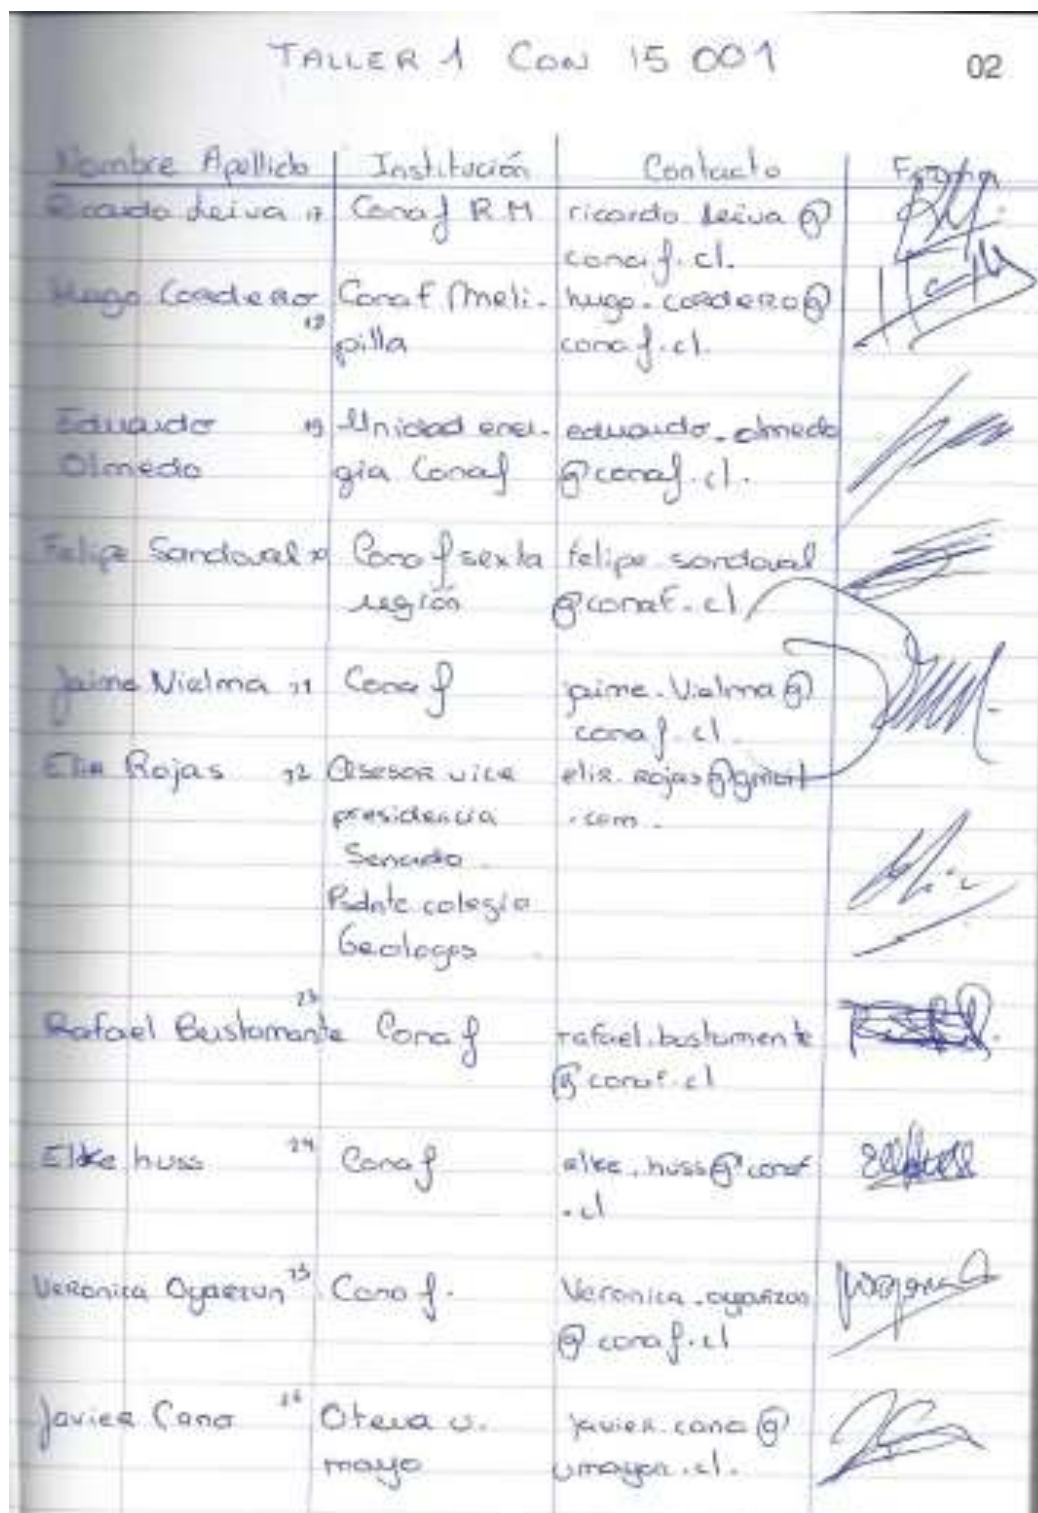 TALLER 1 CON 15 001
02
Nombre Apellido Institución Contacto
Ricardo Leiva 17 Conaf R.M ricardo.leiva@
conaf.cl.
Hugo Cordero Conaf Meli- hugo.cordero@
18 pilla conaf.cl.
Eduardo 19 Unidad ener- eduardo.olmedo
Olmedo gia Conaf @conaf.cl.
Felipe Sandoval Conaf sexta felipe.sandoval
región @conaf.cl
Jaime Vielma 21 Conaf jaime.Vielma@
conaf.cl.
Rojas 22 Asesor vice
presidencia .com.
Senado
Psdnte colegio
Geologos
23
Rafael Bustamante Conaf rafael.bustamente
@conaf.cl
Elke huss 24 Conaf elke.huss@conaf
.cl
Veronica Oyarzun 25 Conaf. Veronica.oyarzun
@conaf.cl
Javier Cano 26 Otera U. javier.cano@
mayo umayor.cl.